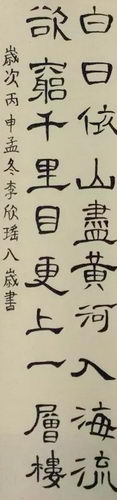 白日依山盡黃河入海流
欲窮千里目更上一層樓
歲次丙申孟冬李欣瑤八歲書